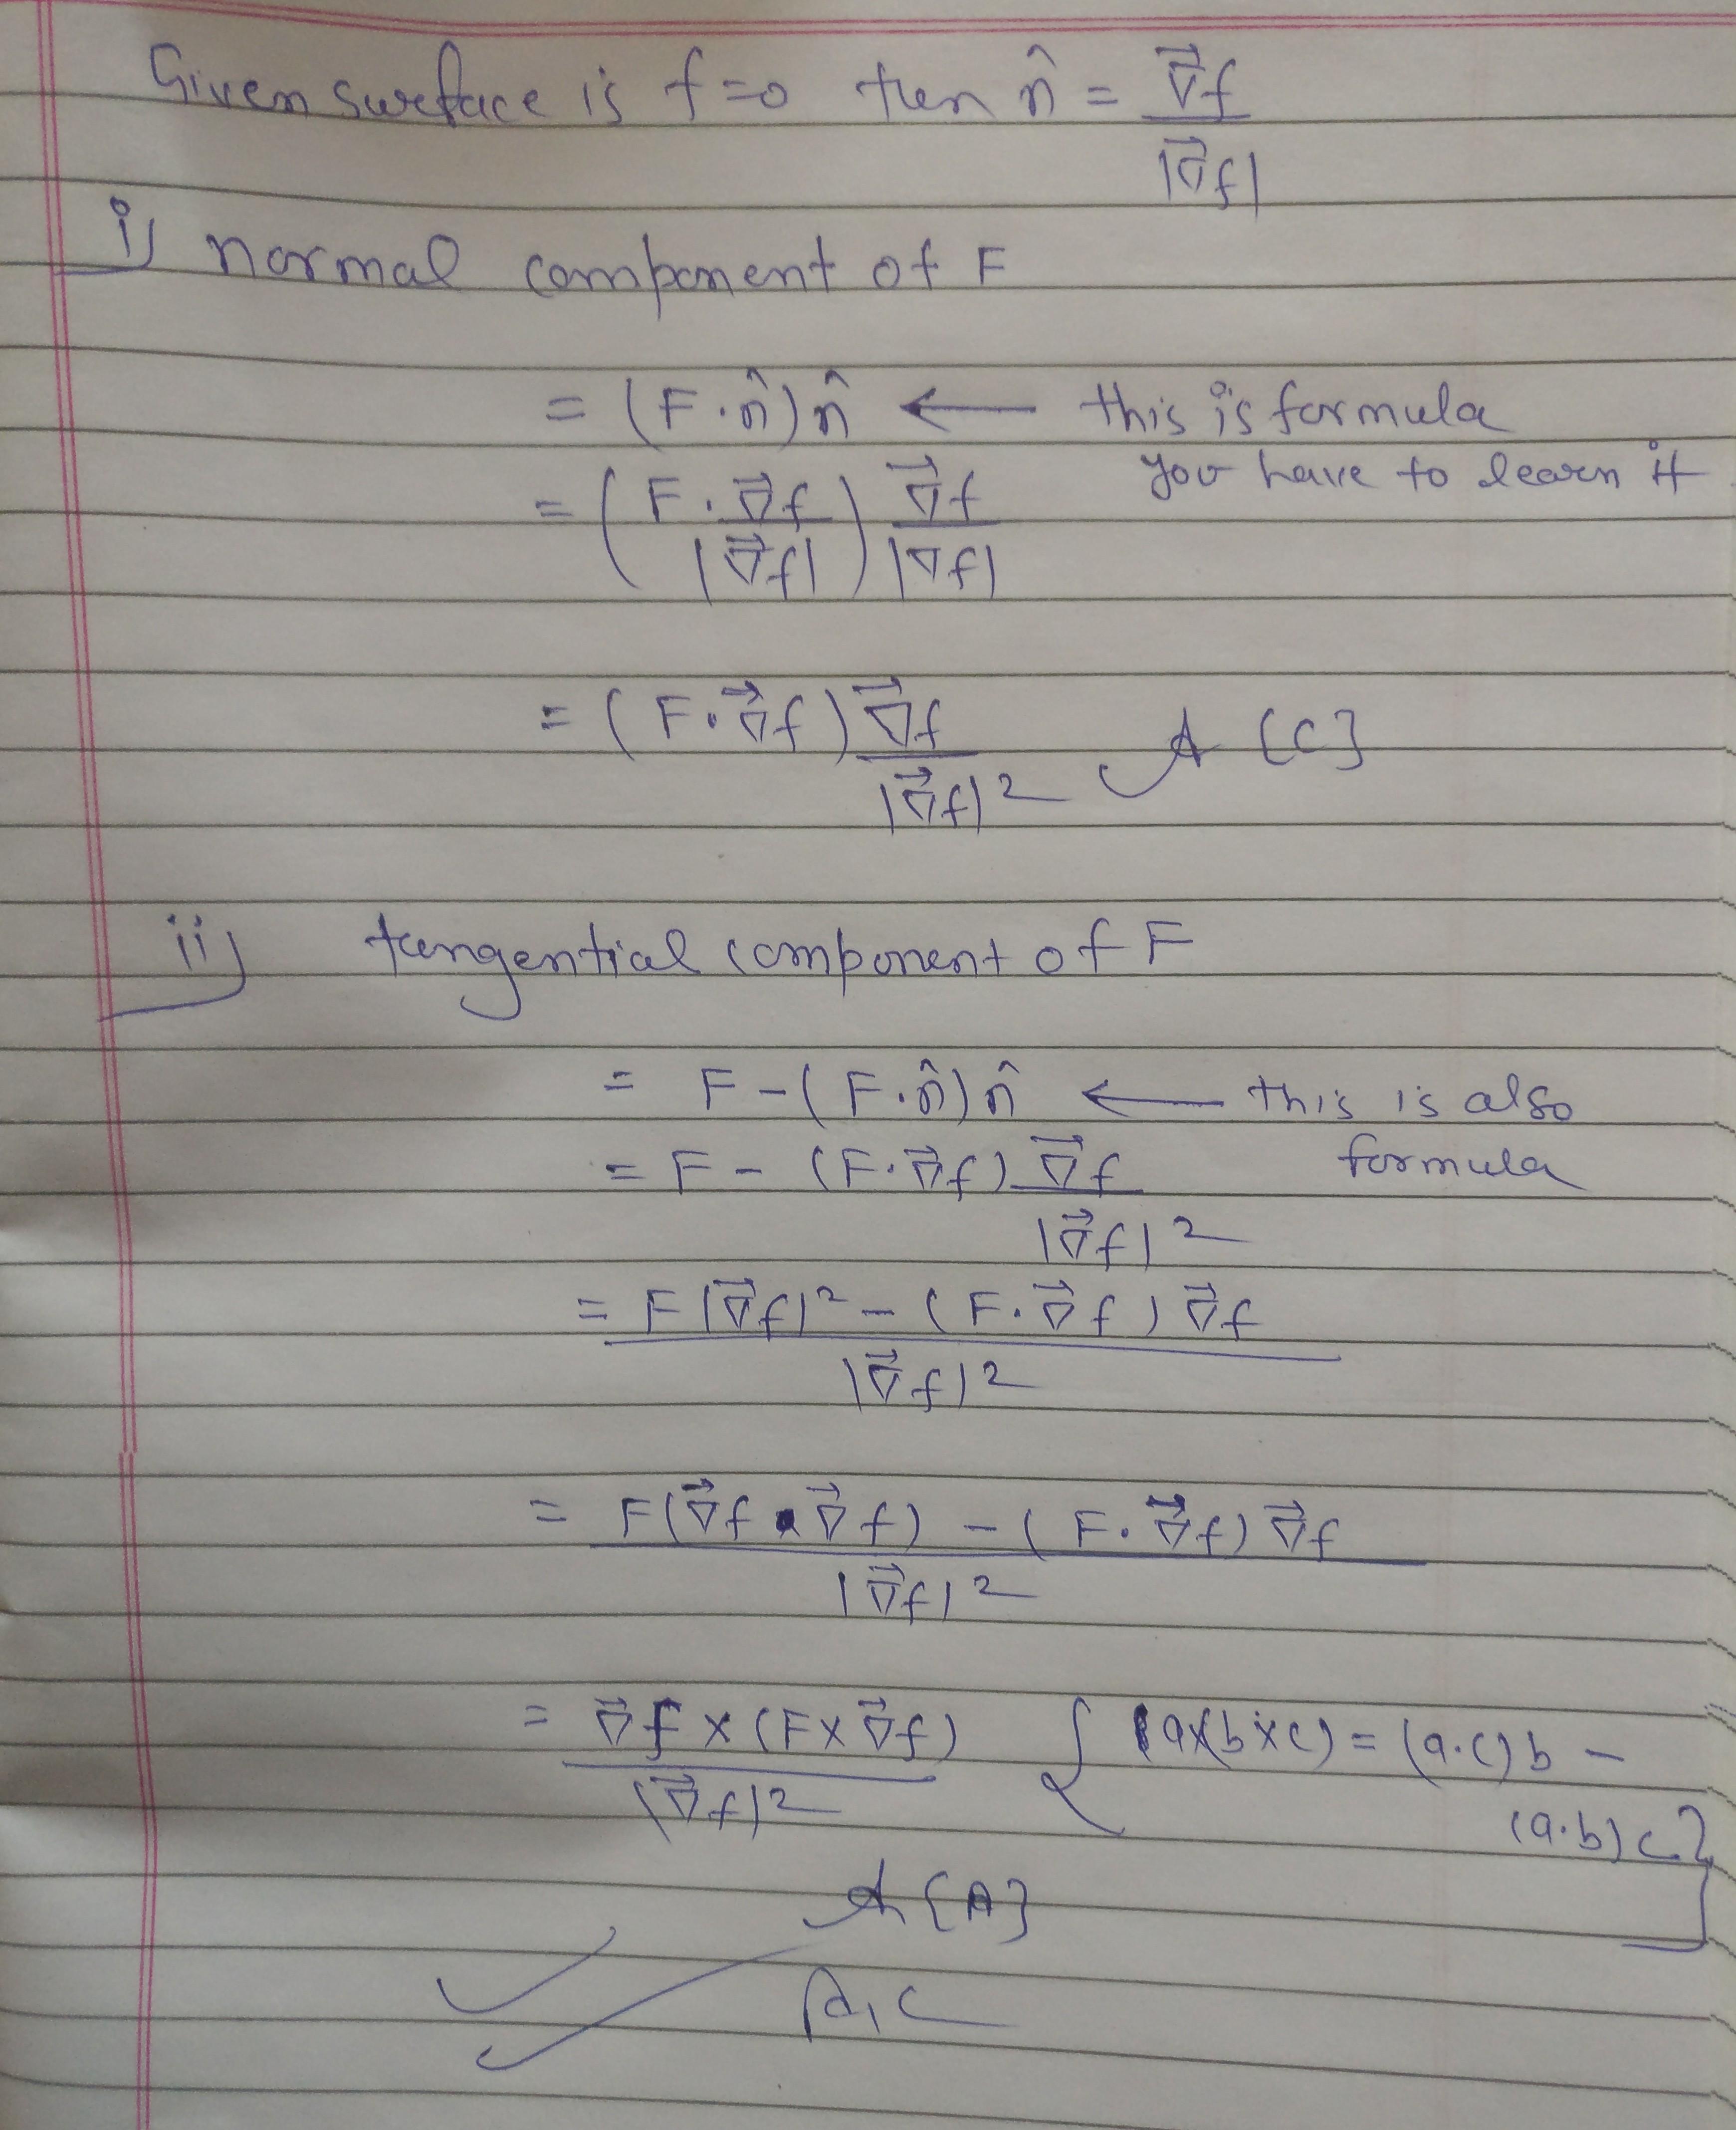 Given surface is f=0 then n̂ = ∇⃗f / |∇⃗f|
i) normal component of F
= (F·n̂)n̂ ← this is formula
you have to learn it
= (F·∇⃗f / |∇⃗f|) ∇⃗f / |∇f|
= (F·∇⃗f) ∇⃗f / |∇⃗f|² A {C}
ii) tangential component of F
= F-(F·n̂)n̂ ← this is also
formula
= F - (F·∇⃗f) ∇⃗f / |∇⃗f|²
= F|∇⃗f|² - (F·∇⃗f) ∇⃗f / |∇⃗f|²
= F(∇⃗f · ∇⃗f) - (F·∇⃗f) ∇⃗f / |∇⃗f|²
= ∇⃗f × (F×∇⃗f) / |∇⃗f|² { a×(b×c) = (a·c)b -
(a·b)c }
A {A}
A, C